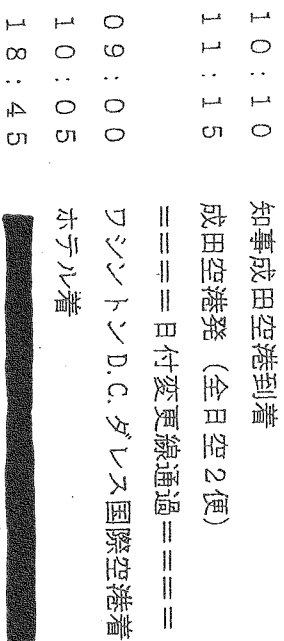 １０：１０　知事成田空港到着
１１：１５　成田空港発（全日空２便）
＝＝＝＝日付変更線通過＝＝＝＝
０９：００　ワシントンD.C.ダレス国際空港着
１０：０５　ホテル着
１８：４５